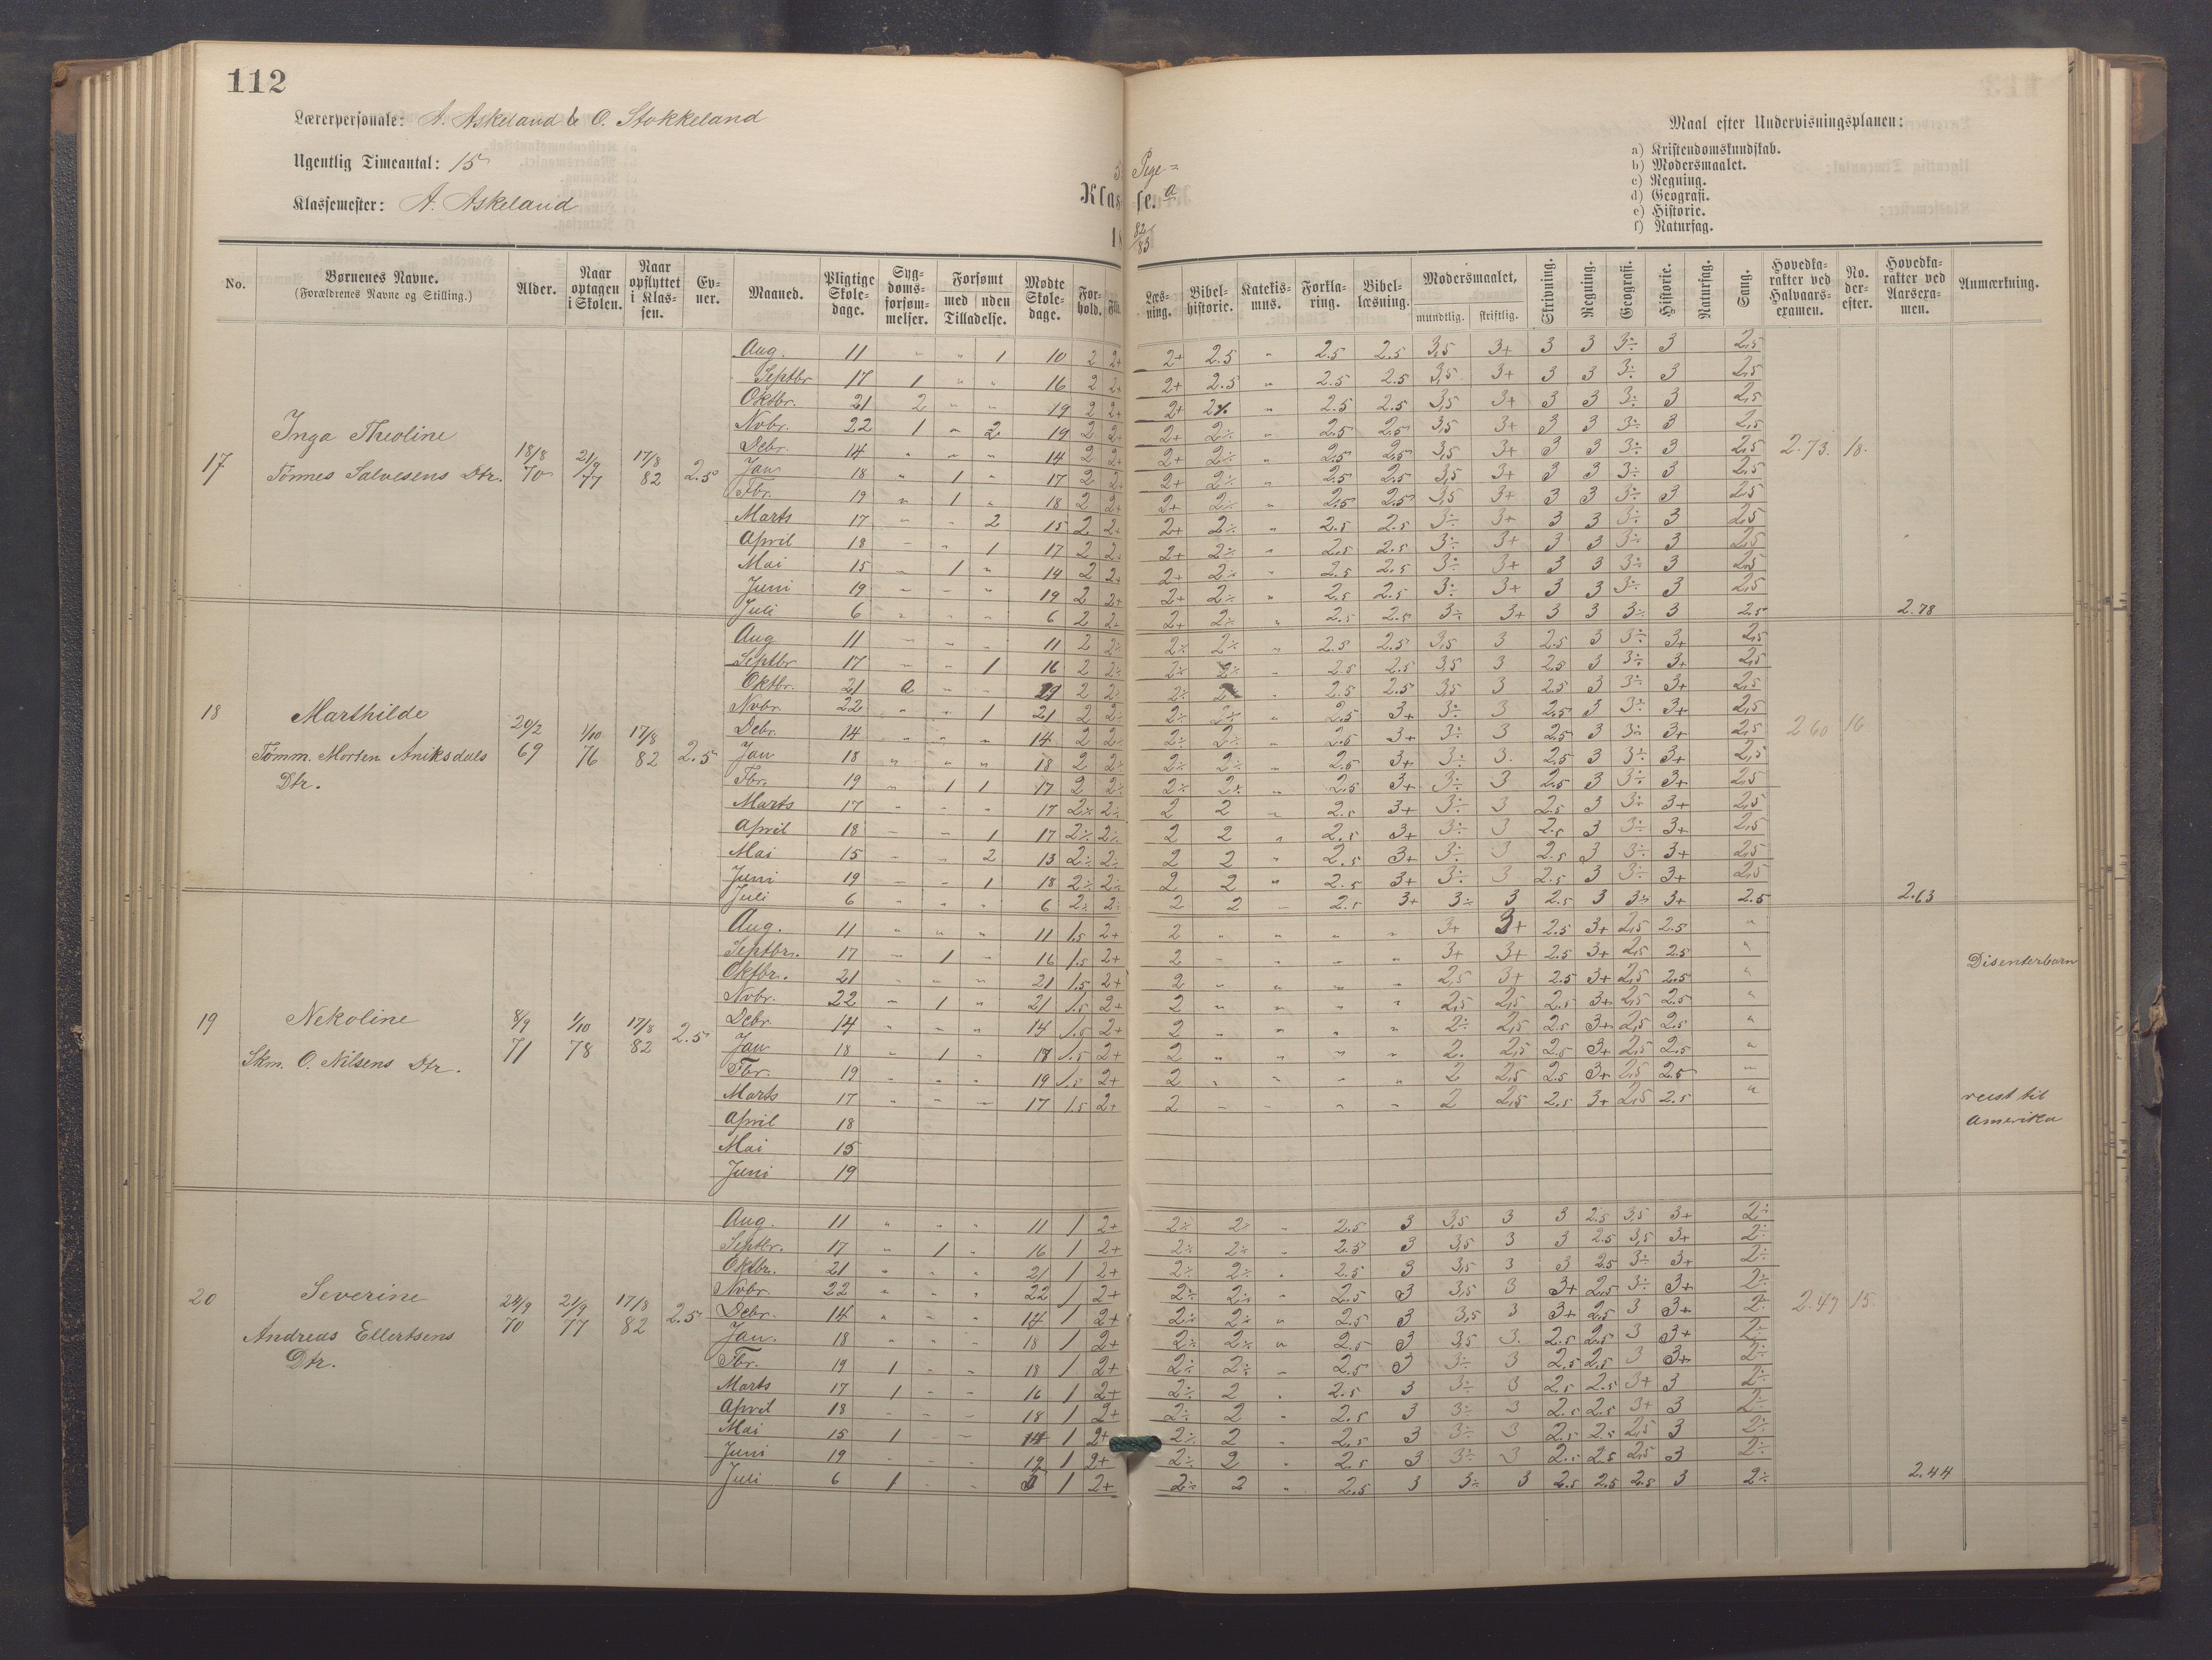 112
Lærerpersonale: A. Askeland & O. Stokkeland
Ugentlig Timeantal: 15
Klassemester: A. Askeland
Pige=
Klasse. a
18 82/83
Maal efter Undervisningsplanen:
a) Kristendomskundskab.
b) Modersmaalet.
c) Regning.
d) Geografi.
e) Historie.
f) Naturfag.
No. Børnenes Navne. (Forældrenes Navne og Stilling.) Alder. Naar optagen i Skolen. Naar opflyttet i Klassen. Evner. Maaned. Pligtige Skoledage. Sygdomsforsømmelser. Forsømt med uden Tilladelse. Mødte Skoledage. Forhold. Læsning. Bibelhistorie. Katekismus. Forklaring. Bibellæsning. Modersmaalet, mundtlig. skriftlig. Skrivning. Regning. Geografi. Historie. Naturfag. Sang. Hovedkarakter ved Halvaarsexamen. No. derefter. Hovedkarakter ved Aarsexamen. Anmærkning.
17 Inga Theoline
Tønnes Salvesens Dtr. 18/8 70 21/9 77 17/8 82 2.5
Aug. 11 " " 1 10 2 2+ 2+ 2.5 " 2.5 2.5 3,5 3+ 3 3 3÷ 3 2,5
Septbr 17 1 " " 16 2 2+ 2+ 2.5 " 2.5 2.5 3,5 3+ 3 3 3÷ 3 2,5
Oktbr. 21 2 " " 19 2 2+ 2+ 2÷ " 2.5 2.5 3,5 3+ 3 3 3÷ 3 2,5
Novbr. 22 1 " 2 19 2 2+ 2+ 2÷ " 2.5 2.5 3,5 3+ 3 3 3÷ 3 2,5
Debr. 14 " " " 14 2 2+ 2+ 2÷ " 2,5 2,5 3,5 3+ 3 3 3÷ 3 2,5 2.73. 18.
Jan 18 " 1 " 17 2 2+ 2+ 2÷ " 2.5 2.5 3,5 3+ 3 3 3÷ 3 2,5
Fbr. 19 " 1 " 18 2 2+ 2+ 2÷ " 2.5 2.5 3,5 3+ 3 3 3÷ 3 2,5
Marts 17 " " 2 15 2 2+ 2+ 2÷ " 2.5 2.5 3÷ 3+ 3 3 3÷ 3 2,5
April 18 " " 1 17 2 2+ 2+ 2÷ " 2.5 2.5 3÷ 3+ 3 3 3÷ 3 2,5
Mai 15 " 1 " 14 2 2+ 2+ 2÷ " 2.5 2.5 3÷ 3+ 3 3 3÷ 3 2,5
Juni 19 " " " 19 2 2+ 2+ 2÷ " 2.5 2.5 3÷ 3+ 3 3 3÷ 3 2,5
Juli 6 " " " 6 2 2+ 2+ 2÷ " 2.5 2.5 3÷ 3+ 3 3 3÷ 3 2.5 2.78
18 Marthilde
Tømm. Morten Aniksdals
Dtr. 20/2 69 1/10 76 17/8 82 2.5
Aug 11 " " " 11 2 2÷ 2÷ 2÷ " 2.5 2.5 3,5 3 2.5 3 3÷ 3+ 2,5
Septbr 17 " " 1 16 2 2÷ 2÷ 2÷ " 2.5 2.5 3,5 3 2.5 3 3÷ 3+ 2,5
Oktbr. 21 2 " " 19 2 2÷ 2÷ " 2.5 2.5 3,5 3 2.5 3 3÷ 3+ 2,5
Novbr. 22 " " 1 21 2 2÷ 2÷ 2÷ " 2.5 3+ 3÷ 3 2.5 3 3÷ 3+ 2,5
Debr. 14 " " " 14 2 2÷ 2÷ 2÷ " 2.5 3+ 3÷ 3 2.5 3 3÷ 3+ 2,5 2.60 16
Jan 18 " " " 18 2 2÷ 2÷ 2÷ " 2.5 3+ 3÷ 3. 2.5 3 3÷ 3+ 2,5
Fbr. 19 " 1 1 17 2 2÷ 2÷ 2÷ " 2.5 3+ 3÷ 3 2.5 3 3÷ 3+ 2,5
Marts 17 " " " 17 2÷ 2÷ 2 2 " 2.5 3+ 3÷ 3 2.5 3 3÷ 3+ 2,5
April 18 " " 1 17 2÷ 2÷ 2 2 " 2.5 3+ 3÷ 3 2.5 3 3÷ 3+ 2,5
Mai 15 " " 2 13 2÷ 2÷ 2 2 " 2.5 3+ 3÷ 3 2.5 3 3÷ 3+ 2,5
Juni 19 " " 1 18 2÷ 2÷ 2 2 " 2.5 3+ 3÷ 3 2.5 3 3÷ 3+ 2,5
Juli 6 " " " 6 2÷ 2÷ 2 2 " 2.5 3+ 3÷ 3 2.5 3 3÷ 3+ 2.5 2.63
19 Nekoline
Skm. O. Nilsens Dtr. 8/9 71 1/10 78 17/8 82 2.5
Aug. 11 " " " 11 1.5 2+ 2 " " " " 3+ 3+ 2.5 3+ 2,5 2.5 "
Septbr. 17 " 1 " 16 1.5 2+ 2 " " " " 3+ 3+ 2.5 3+ 2,5 2.5 " Disenterbarn
Oktbr. 21 " " " 21 1.5 2+ 2 " " " " 2,5 3+ 2.5 3+ 2,5 2.5 "
Novbr. 22 " 1 " 21 1.5 2+ 2 " " " " 2,5 2,5 2.5 3+ 2,5 2.5 "
Debr. 14 " " " 14 1.5 2+ 2 " " " " 2÷ 2,5 2.5 3+ 2,5 2.5 "
Jan 18 " 1 " 17 1.5 2+ 2 " " " " 2. 2,5 2.5 3+ 2,5 2.5 "
Fbr. 19 " " " 19 1.5 2+ 2 " " " " 2 2,5 2.5 3+ 2,5 2.5 "
Marts 17 " " " 17 1.5 2+ 2 " " " " 2 2,5 2.5 3+ 2,5 2.5 " reist til
April 18 Amerika
Mai 15
Juni 19
20 Severine
Andreas Ellertsens
Dtr. 24/9 70 21/9 77 17/8 82 2.5
Aug. 11 " " " 11 1 2+ 2÷ 2÷ " 2.5 3 3,5 3 3 2.5 3,5 3+ 2÷
Septbr. 17 " 1 " 16 1 2+ 2÷ 2÷ " 2.5 3 3,5 3 3 2.5 3,5 3+ 2÷
Oktbr. 21 " " " 21 1 2+ 2÷ 2÷ " 2.5 3 3,5 3 3 2.5 3÷ 3+ 2÷
Novbr. 22 " " " 22 1 2+ 2÷ 2÷ " 2.5 3 3,5 3 3+ 2,5 3÷ 3+ 2÷
Debr. 14 " " " 14 1 2+ 2÷ 2÷ " 2.5 3 3,5 3 3+ 2,5 3 3+ 2÷ 2.47 15.
Jan. 18 " " " 18 1 2+ 2÷ 2÷ " 2.5 3 3,5 3. 2.5 2.5 3 3+ 2÷
Fbr. 19 1 " " 18 1 2+ 2÷ 2÷ " 2.5 3 3÷ 3 2.5 2,5 3 3+ 2÷
Marts 17 1 " " 16 1 2+ 2÷ 2 " 2.5 3 3÷ 3 2.5 2.5 3+ 3 2÷
April 18 " " " 18 1 2+ 2÷ 2 " 2.5 3 3÷ 3 2.5 2.5 3+ 3 2÷
Mai 15 1 " " 14 1 2+ 2÷ 2 " 2.5 3 3÷ 3 2.5 2.5 2,5 3 2÷
Juni 19 " " " 19 1 2+ 2÷ 2 " 2.5 3 3÷ 3 2.5 2.5 2,5 3 2÷
Juli 6 1 " " 5 1 2+ 2÷ 2 " 2.5 3 3÷ 3 2.5 2.5 2.5 3 2÷ 2.44